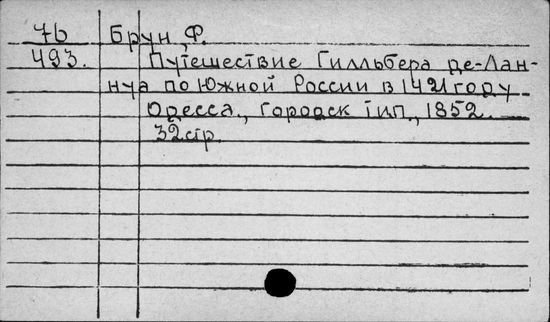 7b Брун, Ф.
493. Путешествие Гилльбера де-Лан-
нуа по Южной России в 1421 году
Одесса., Городск тип., 1852.
32 стр.